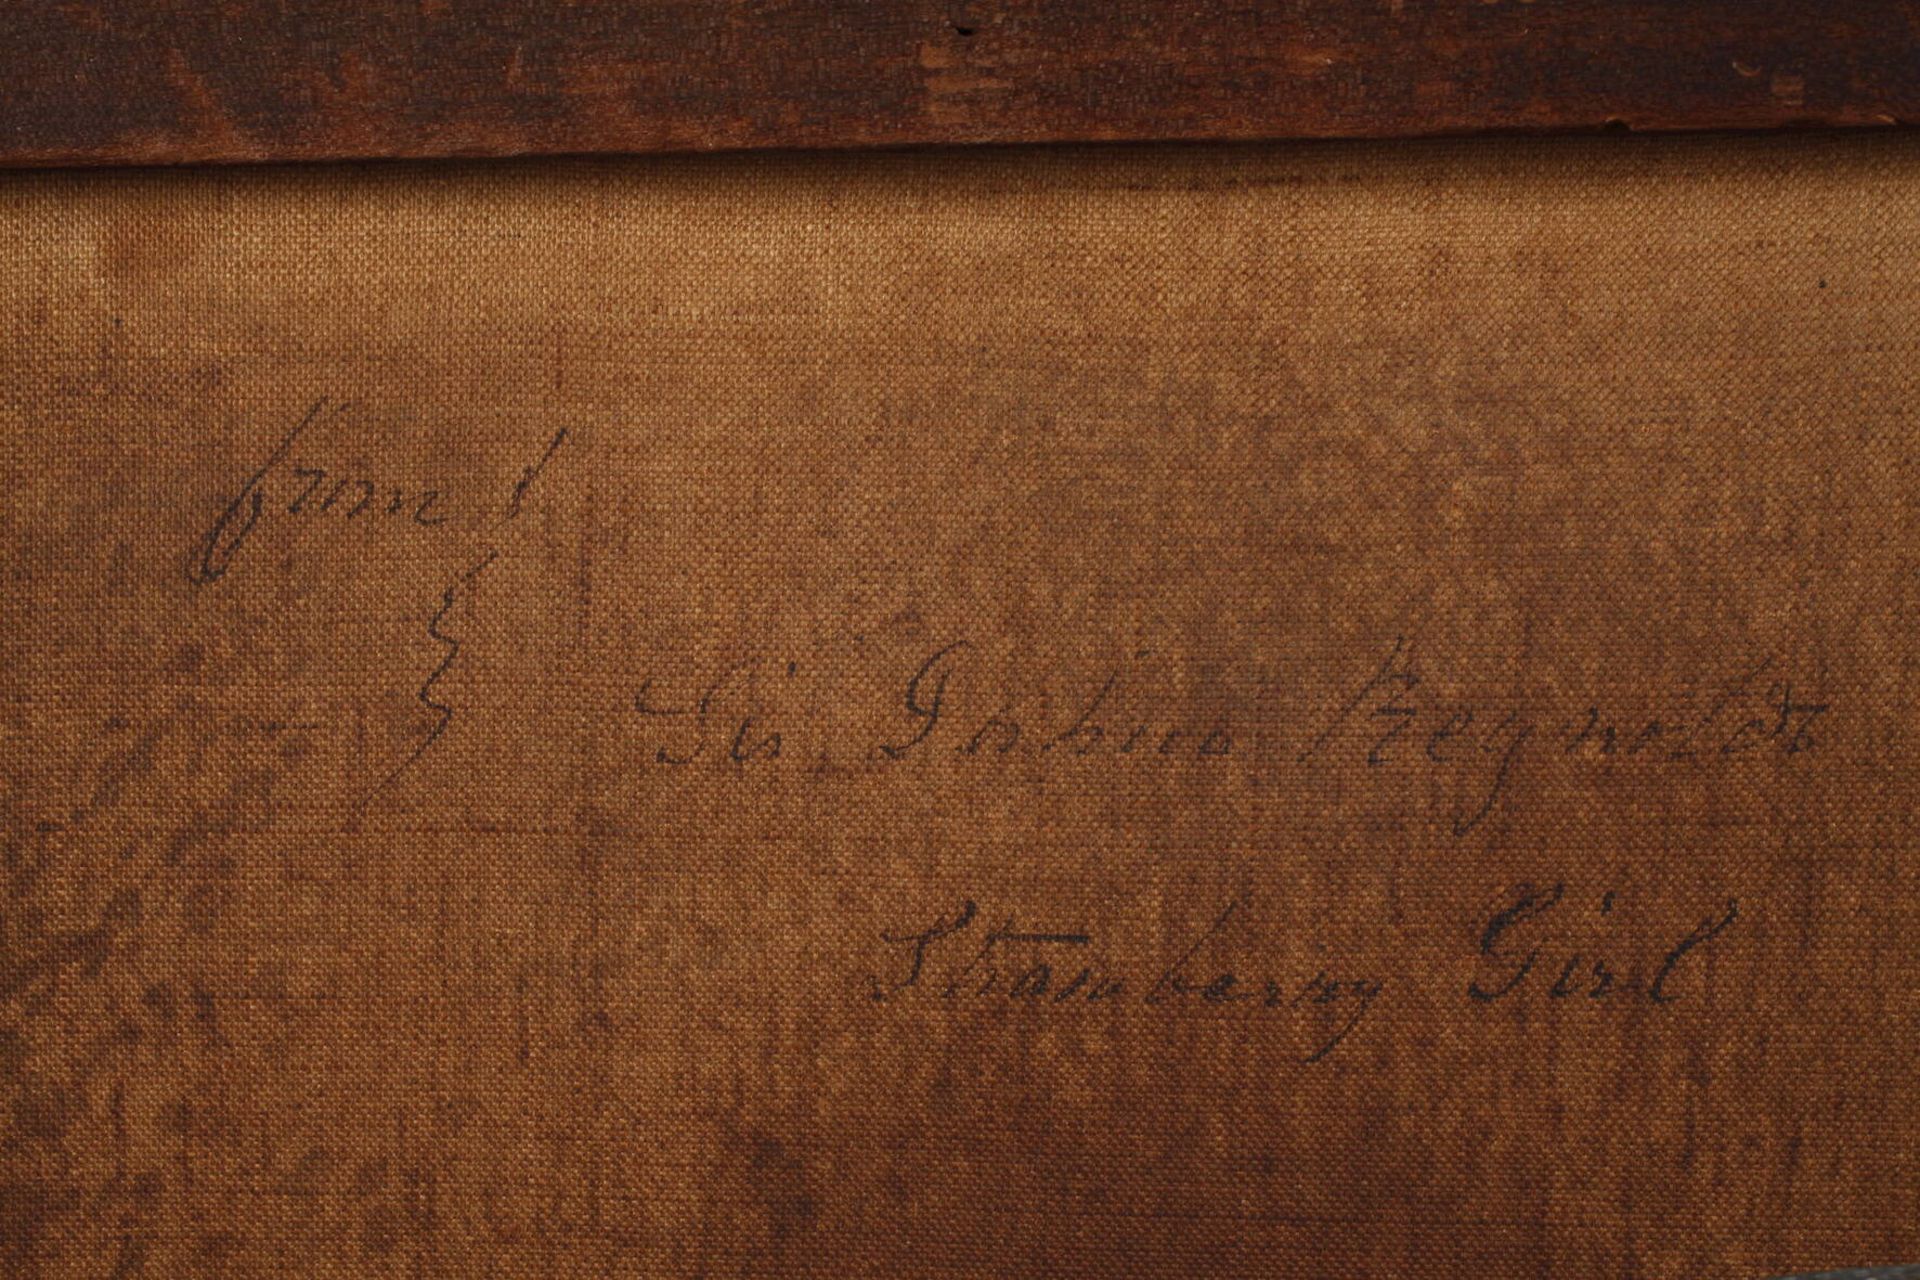 from
Sir Joshua Reynolds
Strawberry Girl